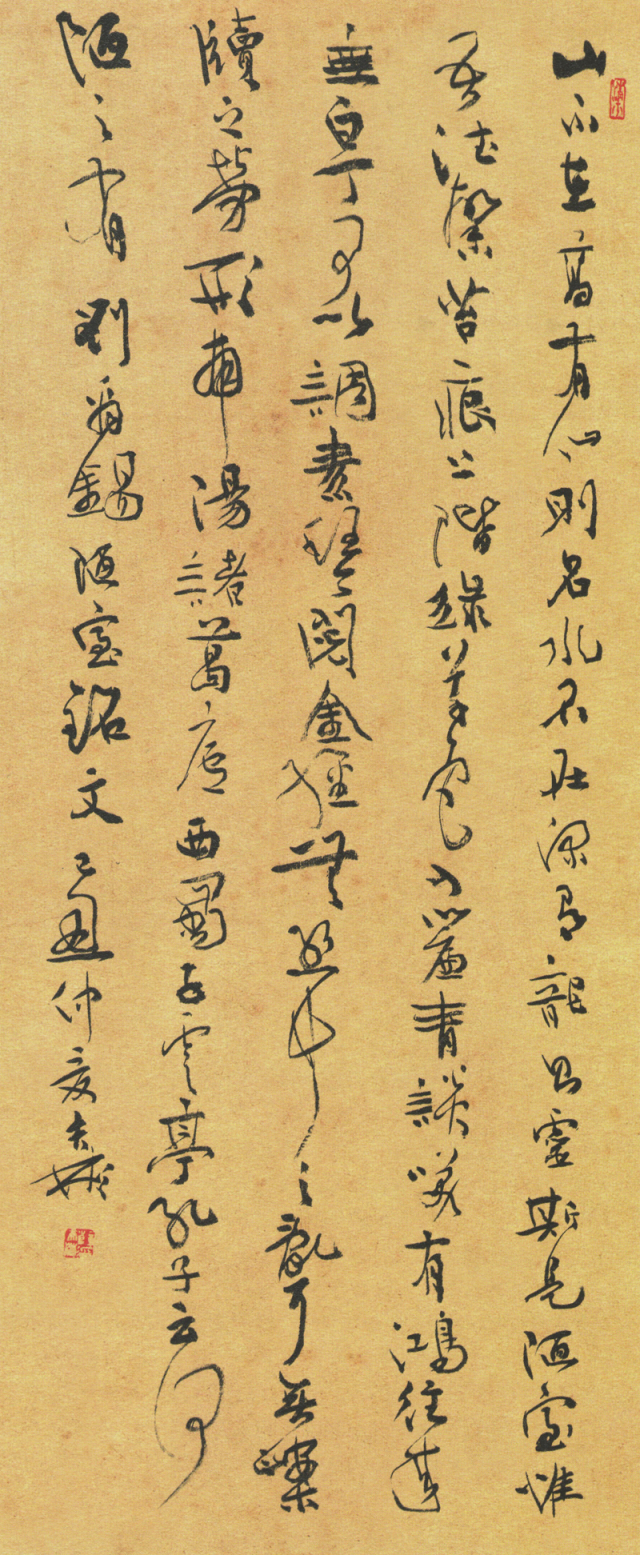 山不在高有仙則名水不在深有龍則靈斯是陋室惟
吾德馨苔痕上階綠草色入簾青談笑有鴻往
無白丁可以調素琴閱金經無絲竹之亂耳無案
牘之勞形南陽諸葛廬西蜀子雲亭孔子云何
陋之有劉禹錫陋室銘文己丑仲夏